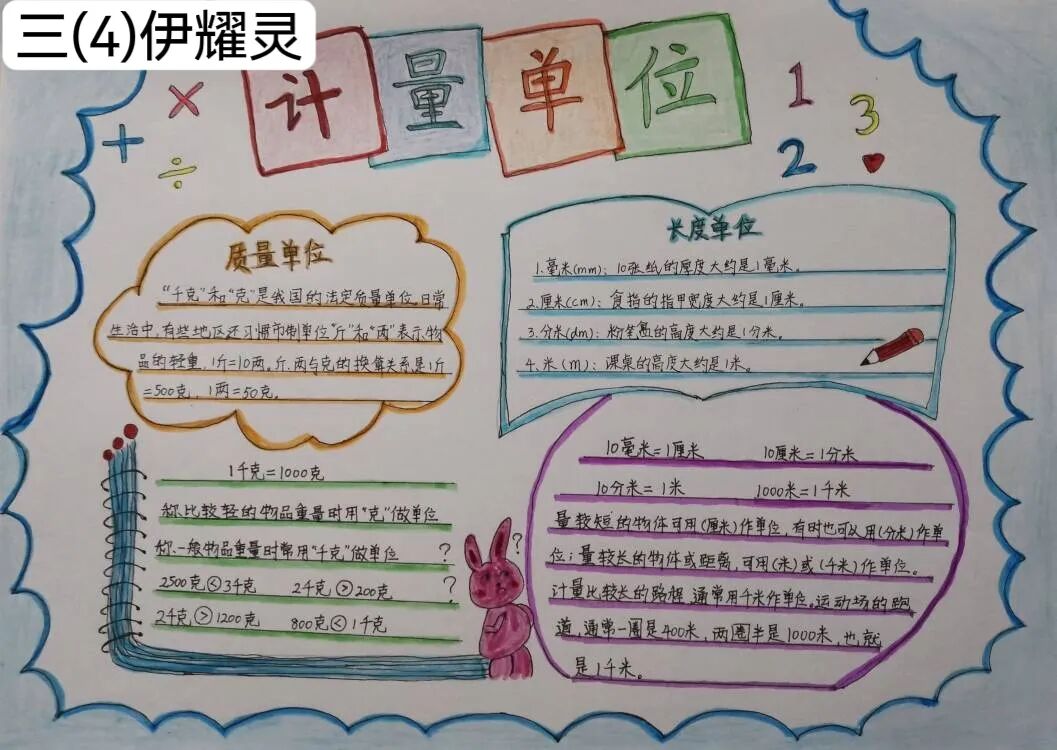 三(4)伊耀灵
计量单位
×
+
÷
1
2
3
质量单位
"千克"和"克"是我国的法定质量单位。日常
生活中，有些地区还习惯市制单位"斤"和"两"表示物
品的轻重，1斤=10两。斤、两与克的换算关系是1斤
=500克，1两=50克。
长度单位
1.毫米(mm)：10张纸的厚度大约是1毫米。
2.厘米(cm)：食指的指甲宽度大约是1厘米。
3.分米(dm)：粉笔盒的高度大约是1分米。
4.米(m)：课桌的高度大约是1米。
1千克=1000克
称比较轻的物品重量时用"克"做单位
称一般物品重量时常用"千克"做单位 ?
2500克<3千克 2千克>200克 ?
2千克>1200克 800克<1千克
?
10毫米=1厘米 10厘米=1分米
10分米=1米 1000米=1千米
量较短的物体可用(厘米)作单位，有时也可以用(分米)作单
位；量较长的物体或距离，可用(米)或(千米)作单位。
计量比较长的路程，通常用千米作单位。运动场的跑
道，通常一圈是400米，两圈半是1000米，也就
是1千米。